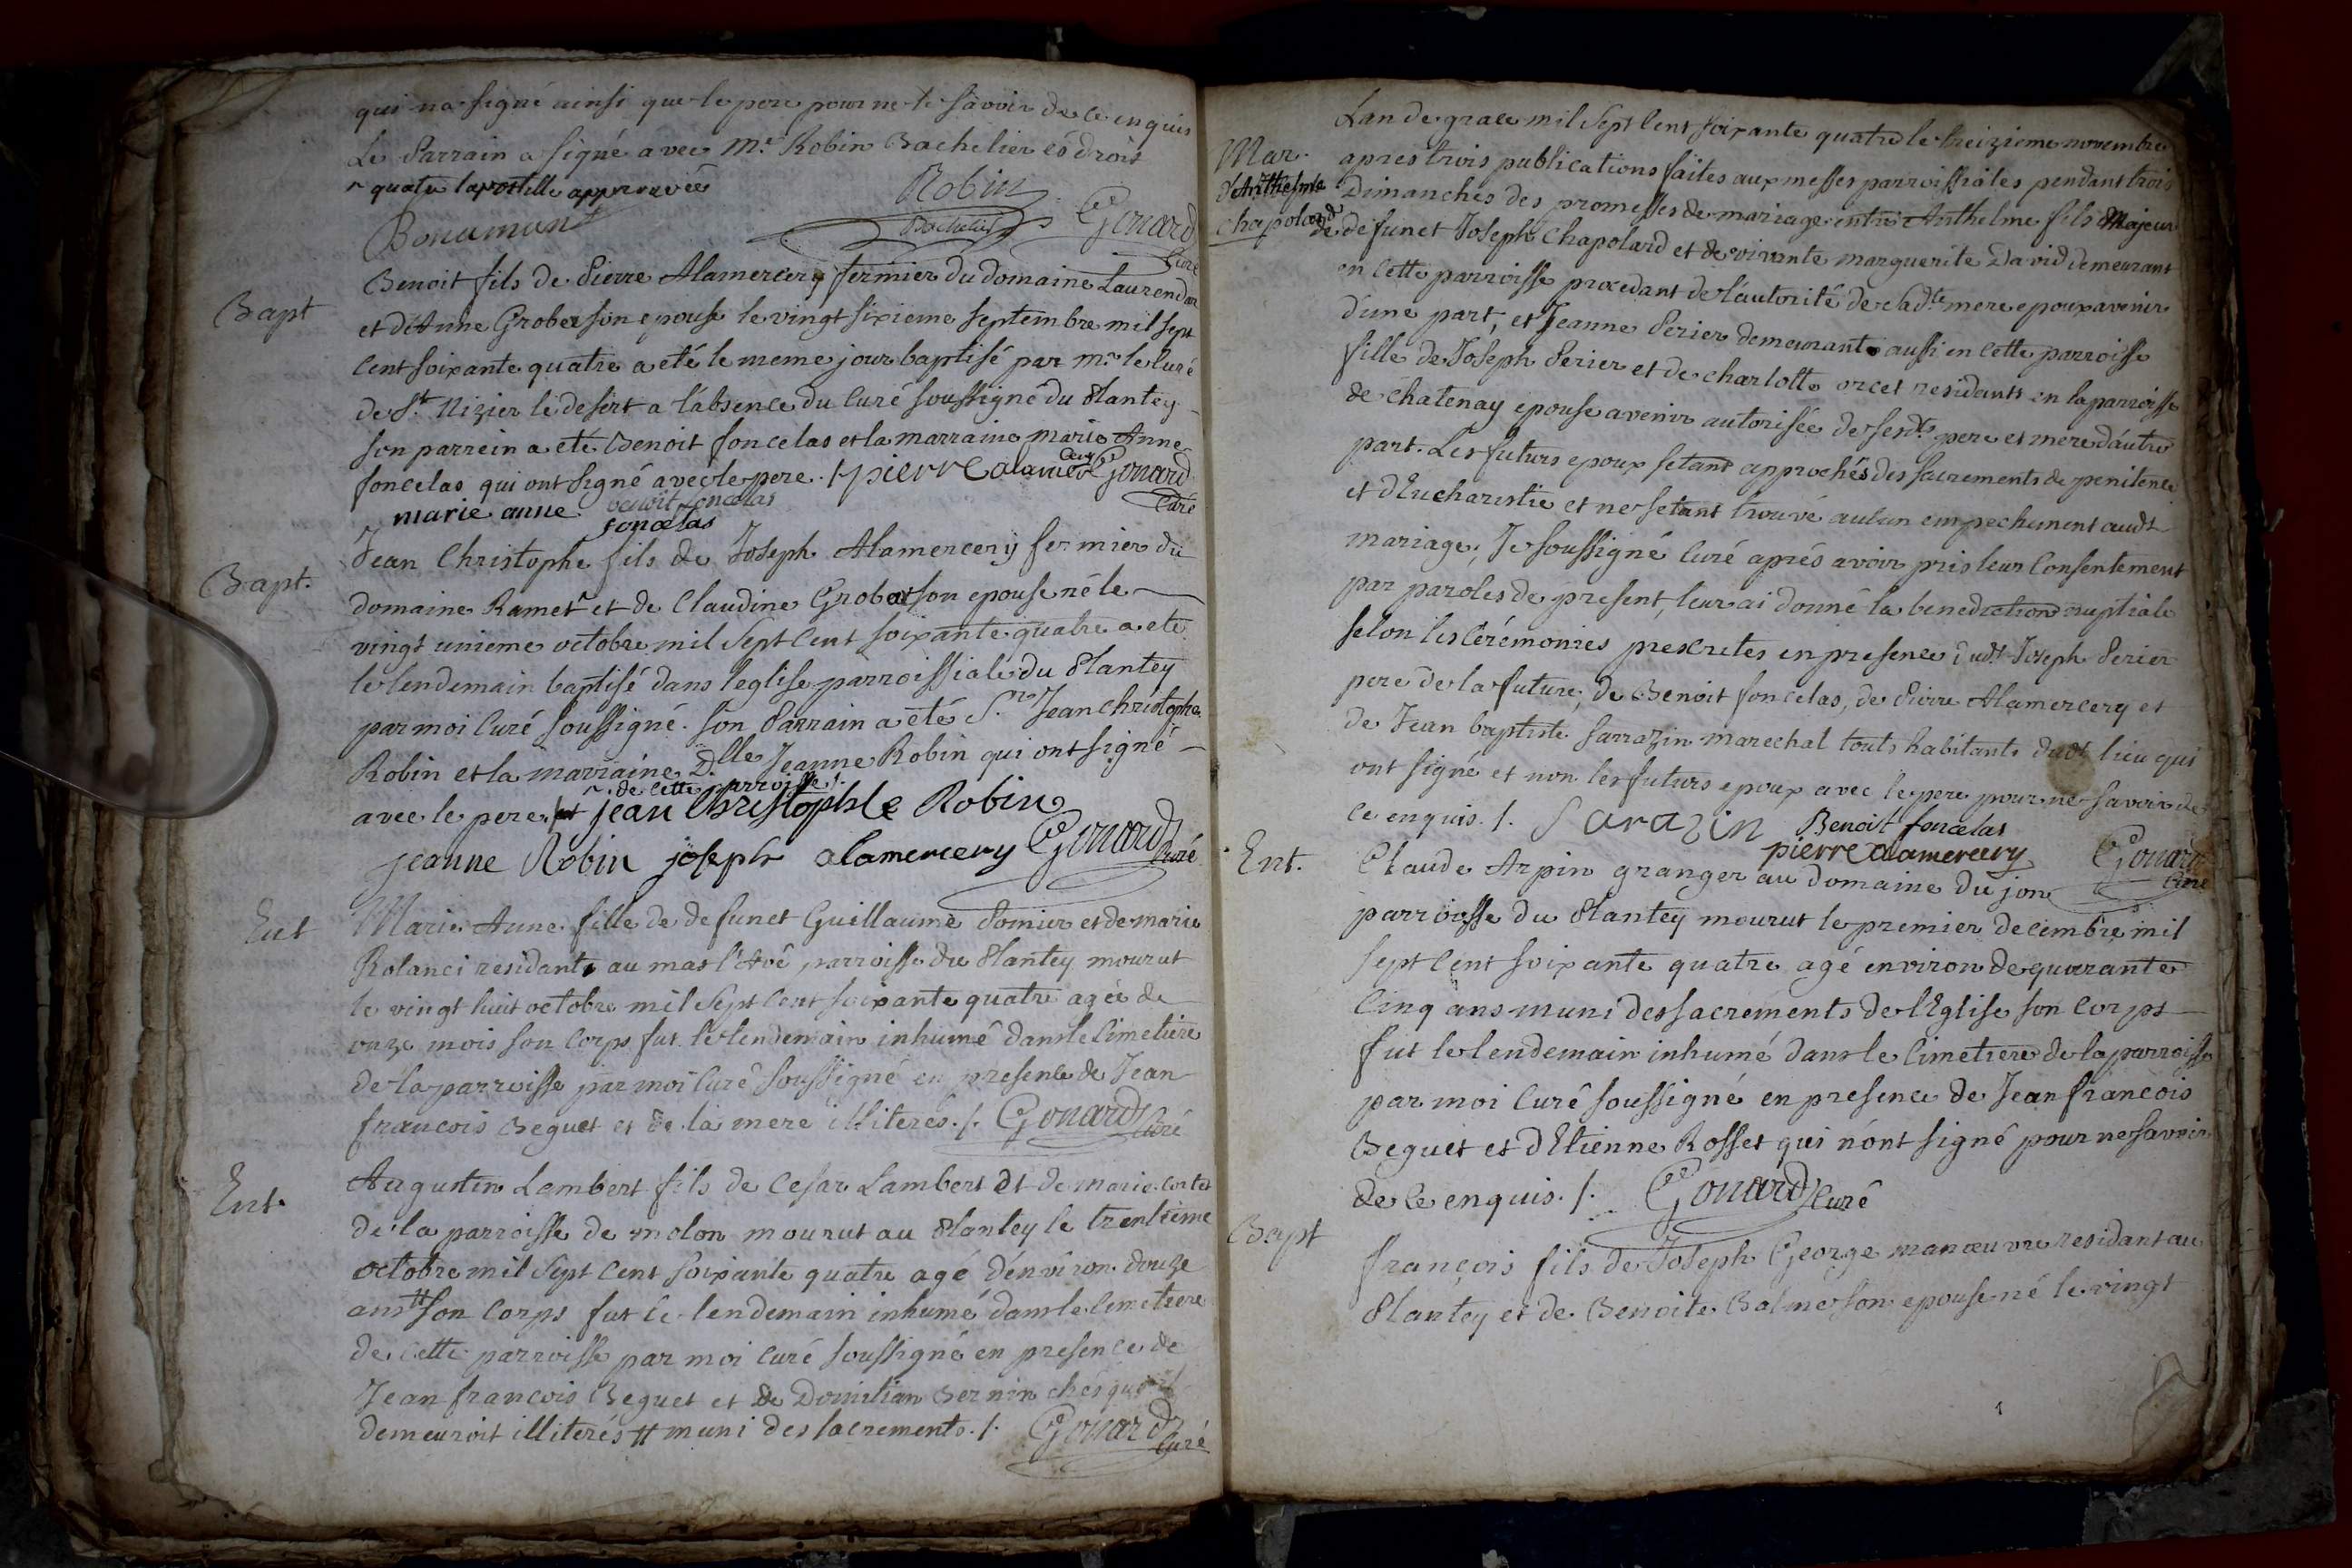 qui na signé ainsi que le pere pour ne le savoir de ce enquis
Le Parrain a signé avec Mr. Robin Bachelier és droit
quatre lapostille approuvée
Robin
Bonamant
Bachelier
Gonard
Curé
Bapt
Benoit fils de Pierre Alamercery fermier du domaine Laurendan
et d'Anne Grobas son epouse le vingt sixieme septembre mil sept
cent soixante quatre a eté le meme jour baptisé par mr. le curé
de St. Nizier le desert a l'absence du curé soussigné du Plantey
son parrein a eté Benoit foncelas et la marraine marie Anne
foncelas qui ont signé avec le pere. /. pierre alamercery Gonard
Curé
marie anne benoit foncelas
foncelas
Bapt.
Jean Christophe fils de Joseph Alamercery fermier du
domaine Ramet et de Claudine Grobas son epouse né le
vingt unieme octobre mil sept cent soixante quatre a eté
le lendemain baptisé dans leglise parroissiale du Plantey
par moi curé soussigné. son Parrain a eté Sr. Jean christophe
Robin et la marraine Dlle Jeanne Robin qui ont signé
de cette parroisse /.
avec le pere jean Christophle Robin
jeanne Robin joseph alamercery Gonard Curé
Ent
Marie Anne fille de defunct Guillaume Pomier et de marie
Rolanci residante au mas l'Avé parroisse du Plantey mourut
le vingt huit octobre mil sept cent soixante quatre agée de
onze mois son corps fut le lendemain inhumé dans le cimetiere
de la parroisse par moi curé soussigné en presence de Jean
francois Beguet et de la mere illiterés. /. Gonard Curé
Ent.
Augustin Lambert fils de Cesar Lambert et de marie cortet
de la parroisse de molon mourut au Plantey le trentieme
octobre mil sept cent soixante quatre agé d'environ douze
ans # son corps fut le lendemain inhumé dans le cimetiere
de cette parroisse par moi curé soussigné en presence de
Jean francois Beguet et de Domitian Bernin chés qui il
demeuroit illiterés # muni des sacrements. /. Gonard Curé
Lan de grace mil sept cent soixante quatre le treizieme novembre
Mar.
d'Anthelme
chapolard
apres trois publications faites aux messes parroissiales pendant trois
Dimanches des promesses de mariage entre Anthelme fils Majeur
de defunct Joseph Chapolard et de vivante marguerite David demeurant
en cette parroisse procedant de l'autorité de sa dte mere epoux avenir
d'une part, et Jeanne Perier demeurante aussi en cette parroisse
fille de Joseph Perier et de charlotte orcet residants en la parroisse
de chatenay epouse avenir autorisée de sesdts pere et mere d'autre
part. Les futurs epoux setant approchés des sacrements de penitence
et dEucharistie et ne setant trouvé aucun empechement audt
mariage, Je soussigné curé aprés avoir pris leur consentement
par paroles de present, leur ai donné la benediction nuptiale
selon les cérémonies prescrites en presence dudt Joseph Perier
pere de la future, de Benoit foncelas, de Pierre Alamercery et
de Jean baptiste sarrazin marechal touts habitants dudt lieu qui
ont signé et non les futurs epoux avec le pere pour ne savoir de
ce enquis. /. Sarazin Benoit foncelas
pierre alamercery Gonard
Curé
Ent.
Claude Arpin granger au domaine du jon
parroisse du Plantey mourut le premier decembre mil
sept cent soixante quatre agé environ de quarante
cinq ans muni des sacrements de l'Eglise son corps
fut le lendemain inhumé dans le cimetiere de la parroisse
par moi curé soussigné en presence de Jean francois
Beguet et dEtienne Rosset qui n'ont signé pour ne savoir
de ce enquis. /. Gonard Curé
Bapt
françois fils de Joseph George manœuvre residant au
Plantey et de Benoite Balme son epouse né le vingt